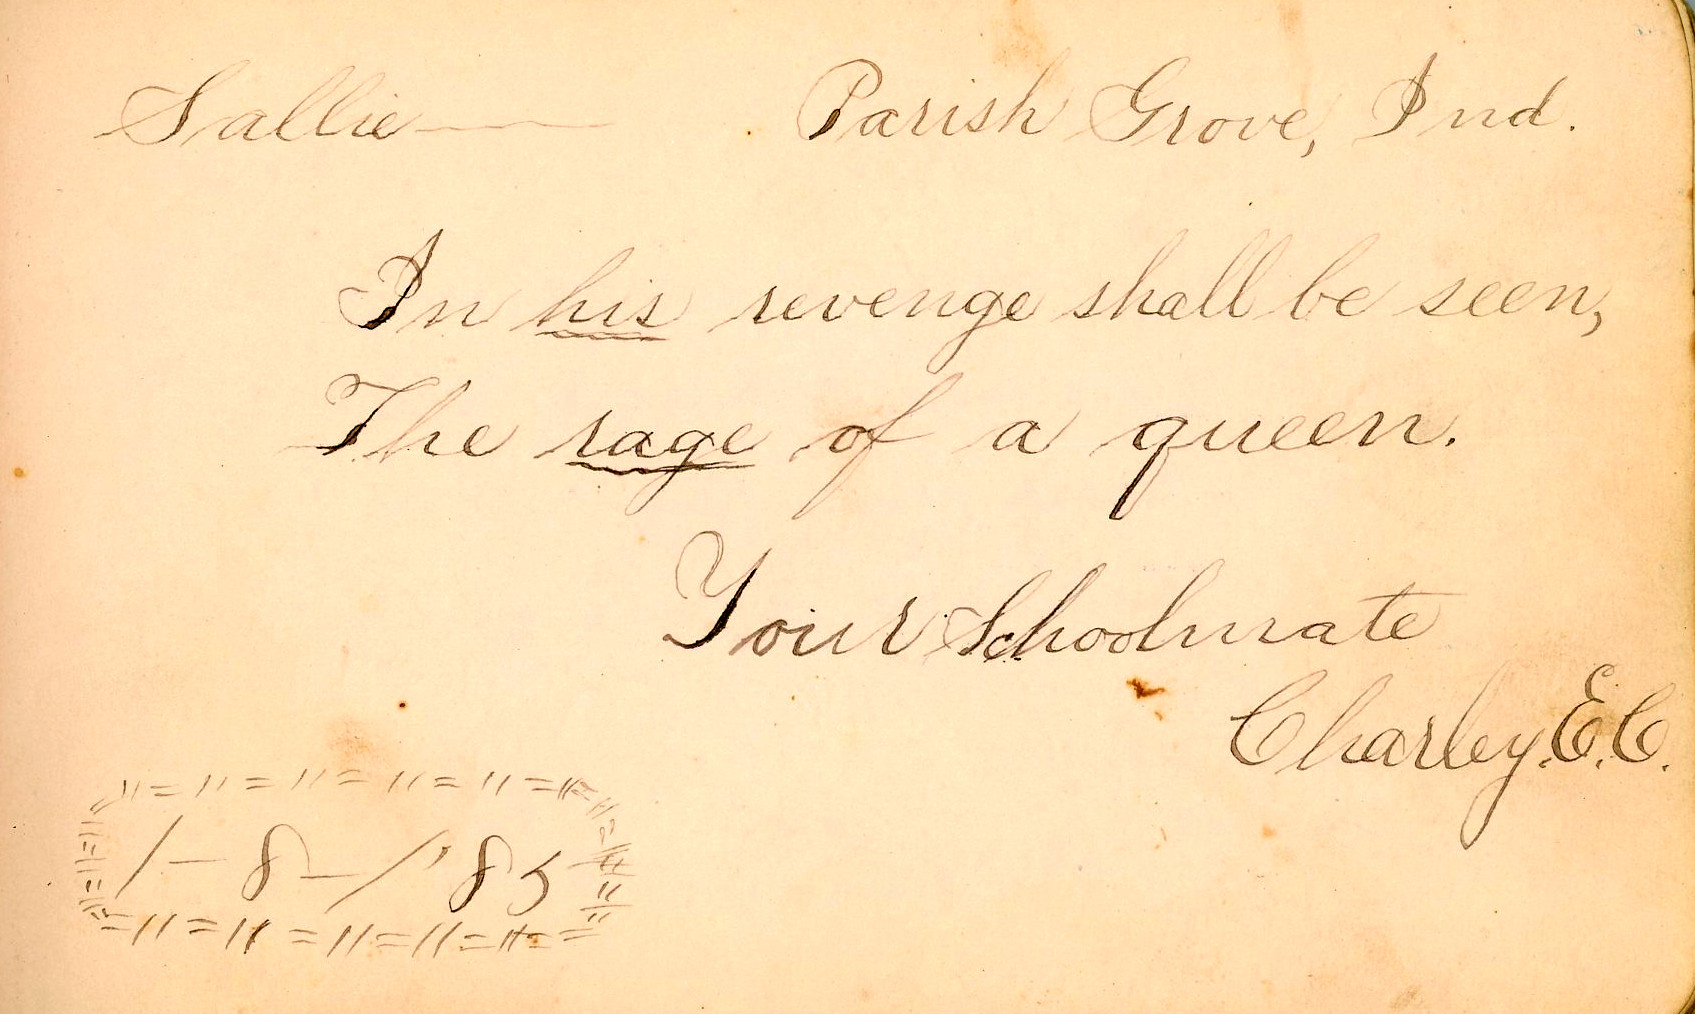 Sallie — Parish Grove, Ind.
In his revenge shall be seen,
The rage of a queen.
Your Schoolmate
Charley. E. C.
1-8-1'85